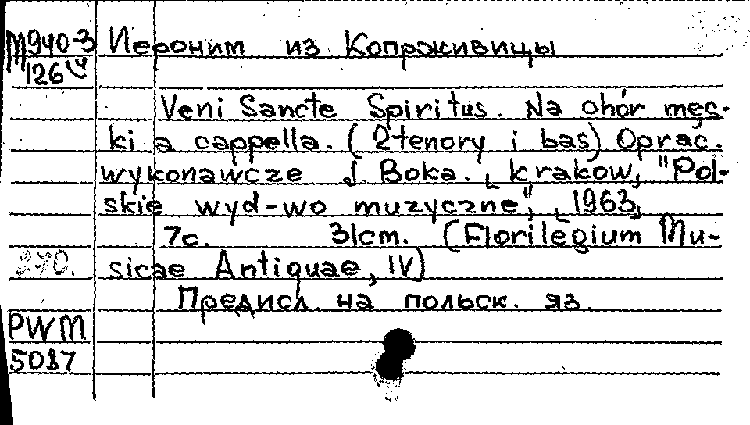 М940-3 Иероним из Копрживицы
126
Veni Sancte Spiritus. Na chór męs-
ki a cappella. (2 tenory i bas) Oprac.
wykonawcze J Boka. [krakow, "Pol-
skie wyd-wo muzyczne", [1963]
7c. 31cm. (Florilegium Mu-
270. sicae Antiquae, IV)
Предисл. на польск. яз.
PWM
5087